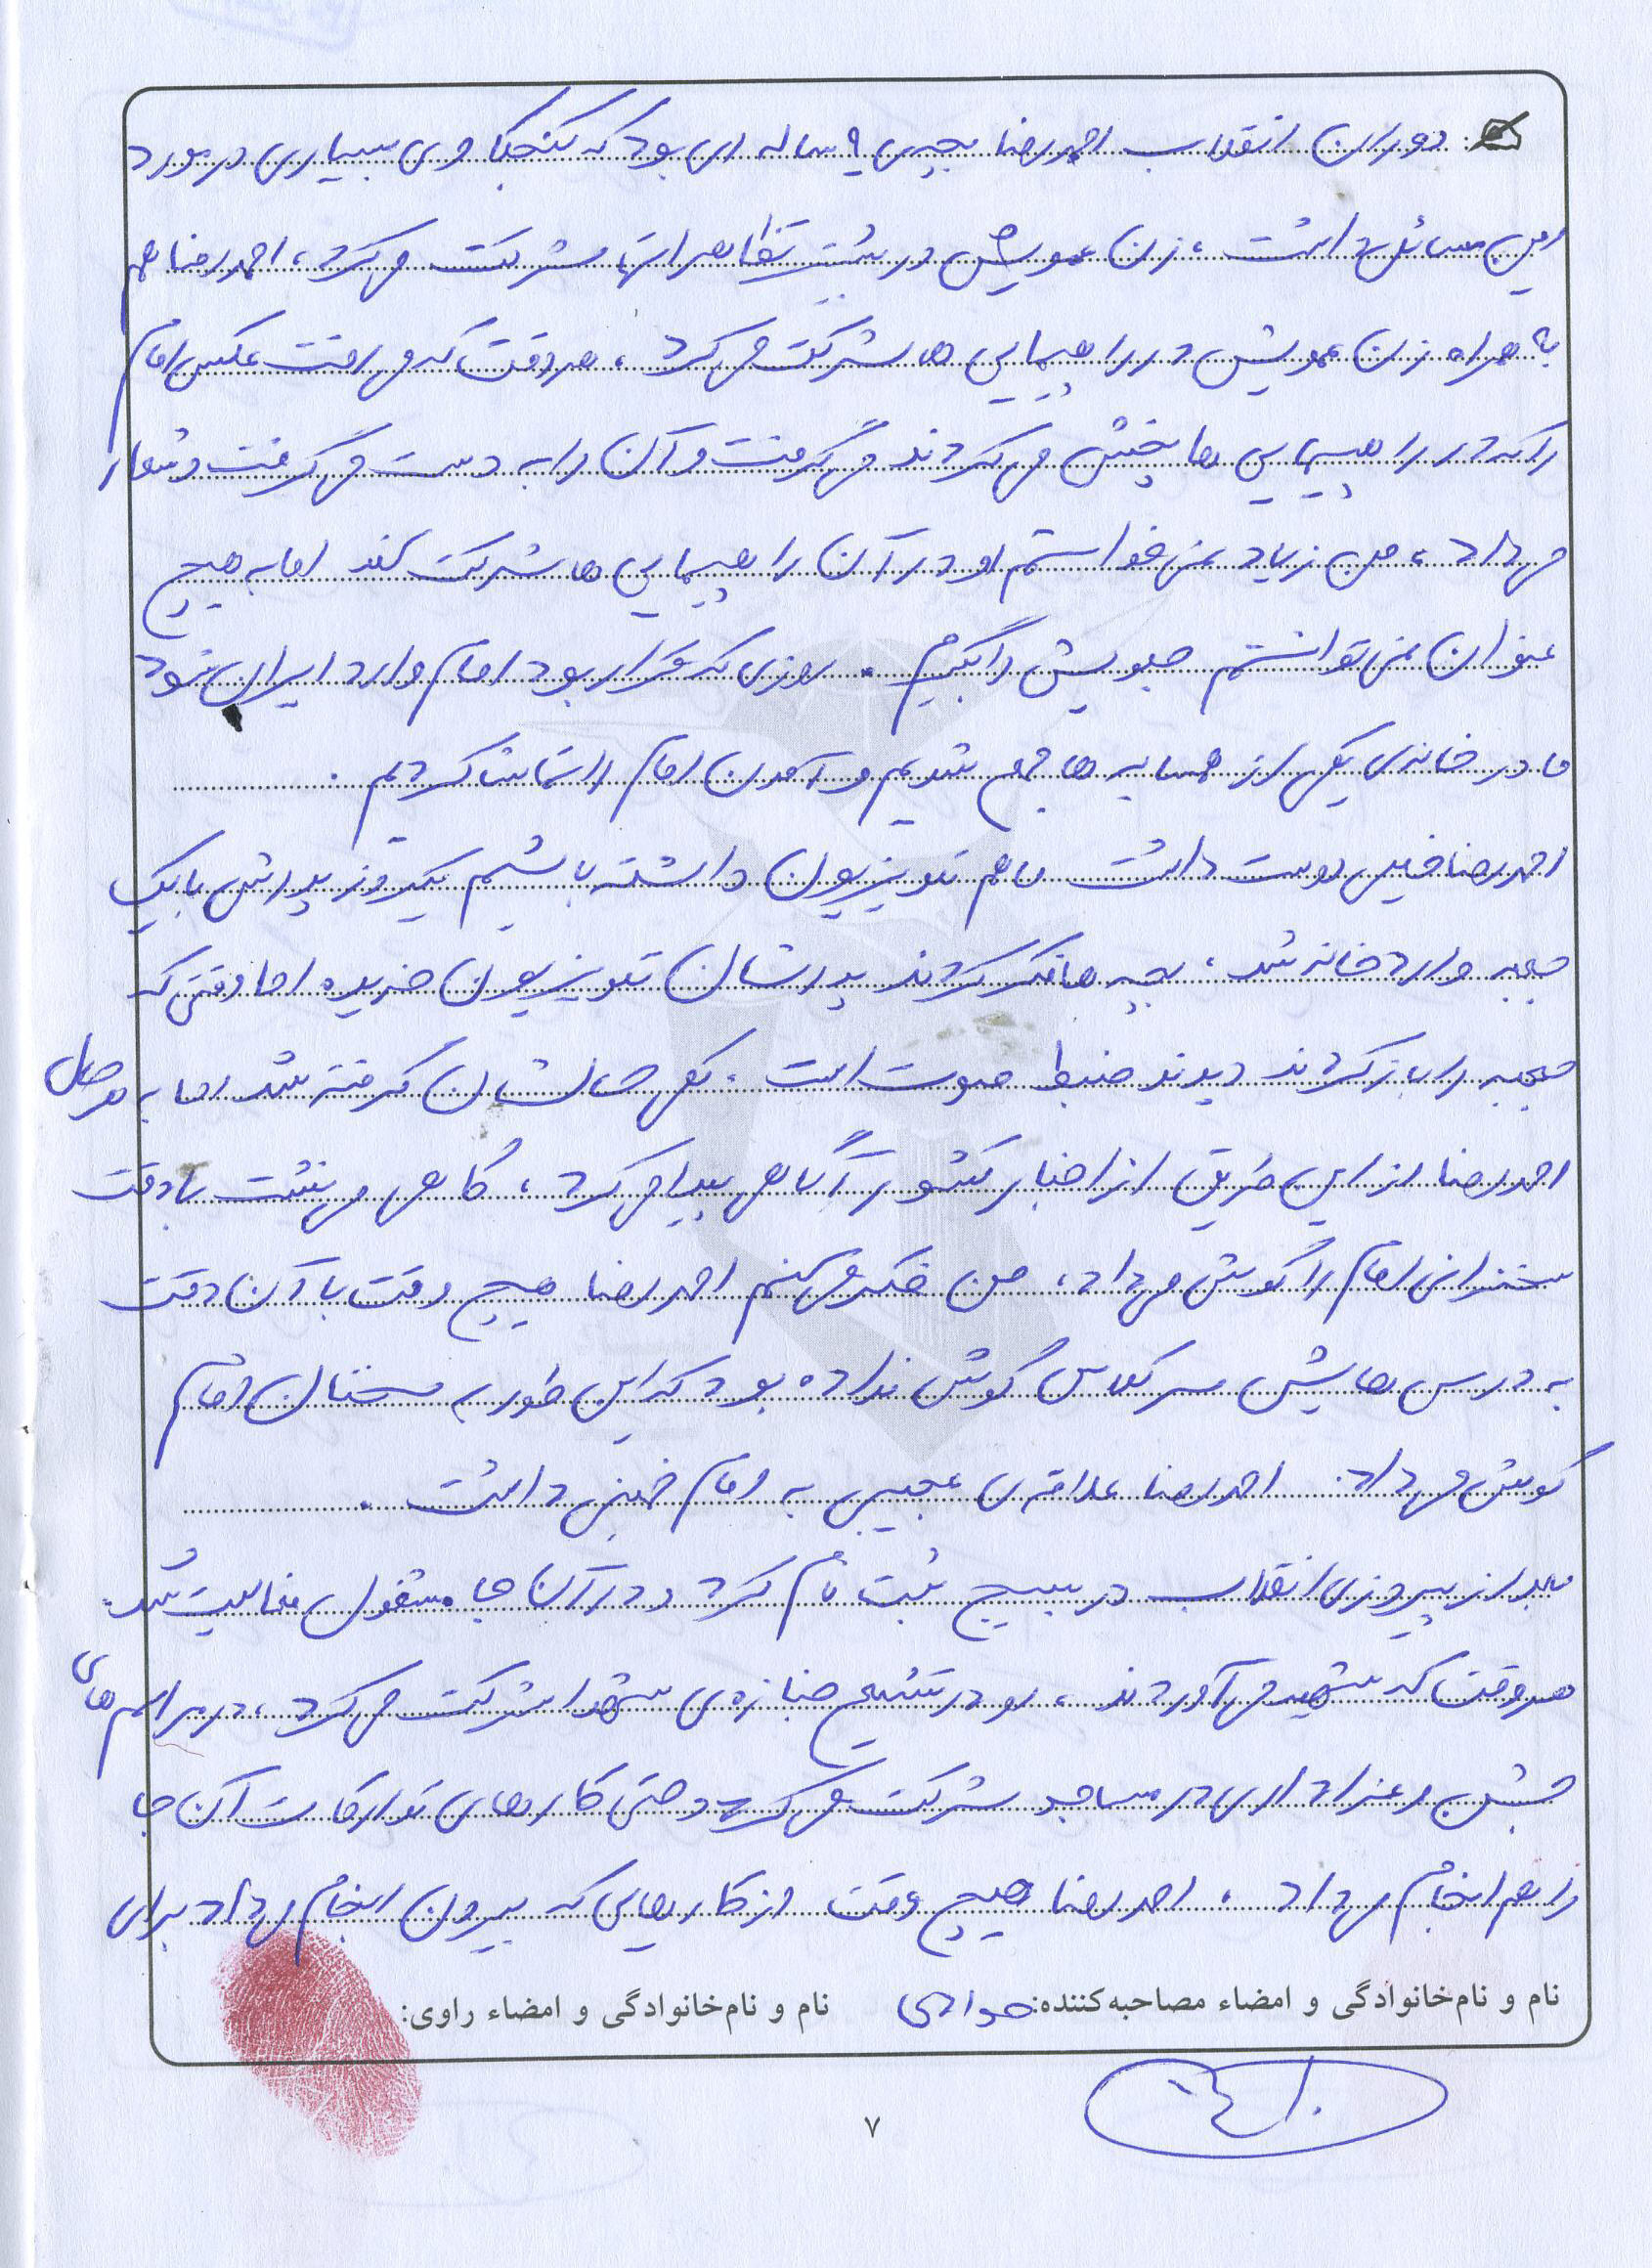 دوران انقلاب احمدرضا بچه‌ی ۹ ساله ای بود که کنجکاوی بسیاری در مورد
این مسائل داشت ، زن عمویش در بیشتر تظاهراتها شرکت می کرد ، احمدرضا هم
با همراه زن عمویش در راهپیمایی ها شرکت می کرد ، هر وقت که می رفت عکس امام
را که در راهپیمایی ها پخش می کردند می گرفت و آن را به دست می گرفت و شعار
می داد ، من زیاد نمی خواستم او در آن راهپیمایی ها شرکت کند اما به هیچ
عنوان نمی توانستم جلویش را بگیرم . روزی که قرار بود امام وارد ایران شود
ما در خانه‌ی یکی از همسایه ها جمع شدیم و آمدن امام را تماشا کردیم .
احمدرضا خیلی دوست داشت ما هم تلویزیون داشته باشیم یکروز پدرش با یک
جعبه وارد خانه شد ، بچه ها فکر کردند پدرشان تلویزیون خریده اما وقتی که
جعبه را باز کردند دیدند ضبط صوت است . کمی حالشان گرفته شد اما به هر حال
احمدرضا از این طریق از اخبار کشور آگاهی پیدا می کرد ، گاهی می نشست با دقت
سخنرانی امام را گوش می داد ، من فکر می کنم احمدرضا هیچ وقت با آن دقت
به درس هایش سر کلاس گوش نداده بود که این طور به سخنان امام
گوش می داد. احمدرضا علاقه‌ی عجیبی به امام خمینی داشت .
بعد از پیروزی انقلاب در بسیج ثبت نام کرد و در آن جا مشغول فعالیت شد.
هر وقت که شهید می آوردند ، او در تشییع جنازه‌ی شهدا شرکت می کرد ، در مراسم های
جشن و عزاداری در مساجد شرکت می کرد و حتی کارهای تدارکات آن جا
را هم انجام می داد . احمدرضا هیچ وقت از کارهایی که بیرون انجام می داد برای
نام و نام‌خانوادگی و امضاء مصاحبه‌کننده: جوادی نام و نام‌خانوادگی و امضاء راوی:
۷